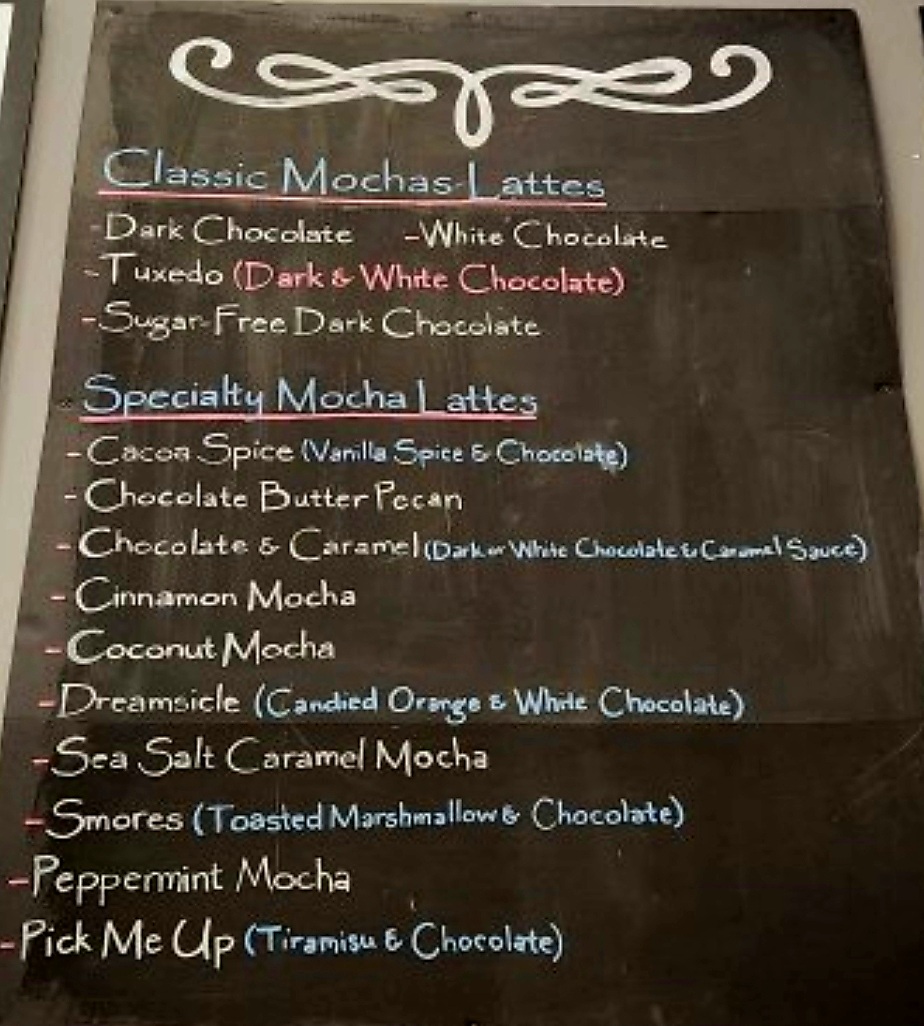 Classic Mochas-Lattes
-Dark Chocolate -White Chocolate
-Tuxedo (Dark & White Chocolate)
-Sugar-Free Dark Chocolate
Specialty Mocha Lattes
-Cacoa Spice (Vanilla Spice & Chocolate)
-Chocolate Butter Pecan
-Chocolate & Caramel (Dark or White Chocolate & Caramel Sauce)
-Cinnamon Mocha
-Coconut Mocha
-Dreamsicle (Candied Orange & White Chocolate)
-Sea Salt Caramel Mocha
-Smores (Toasted Marshmallow & Chocolate)
-Peppermint Mocha
-Pick Me Up (Tiramisu & Chocolate)